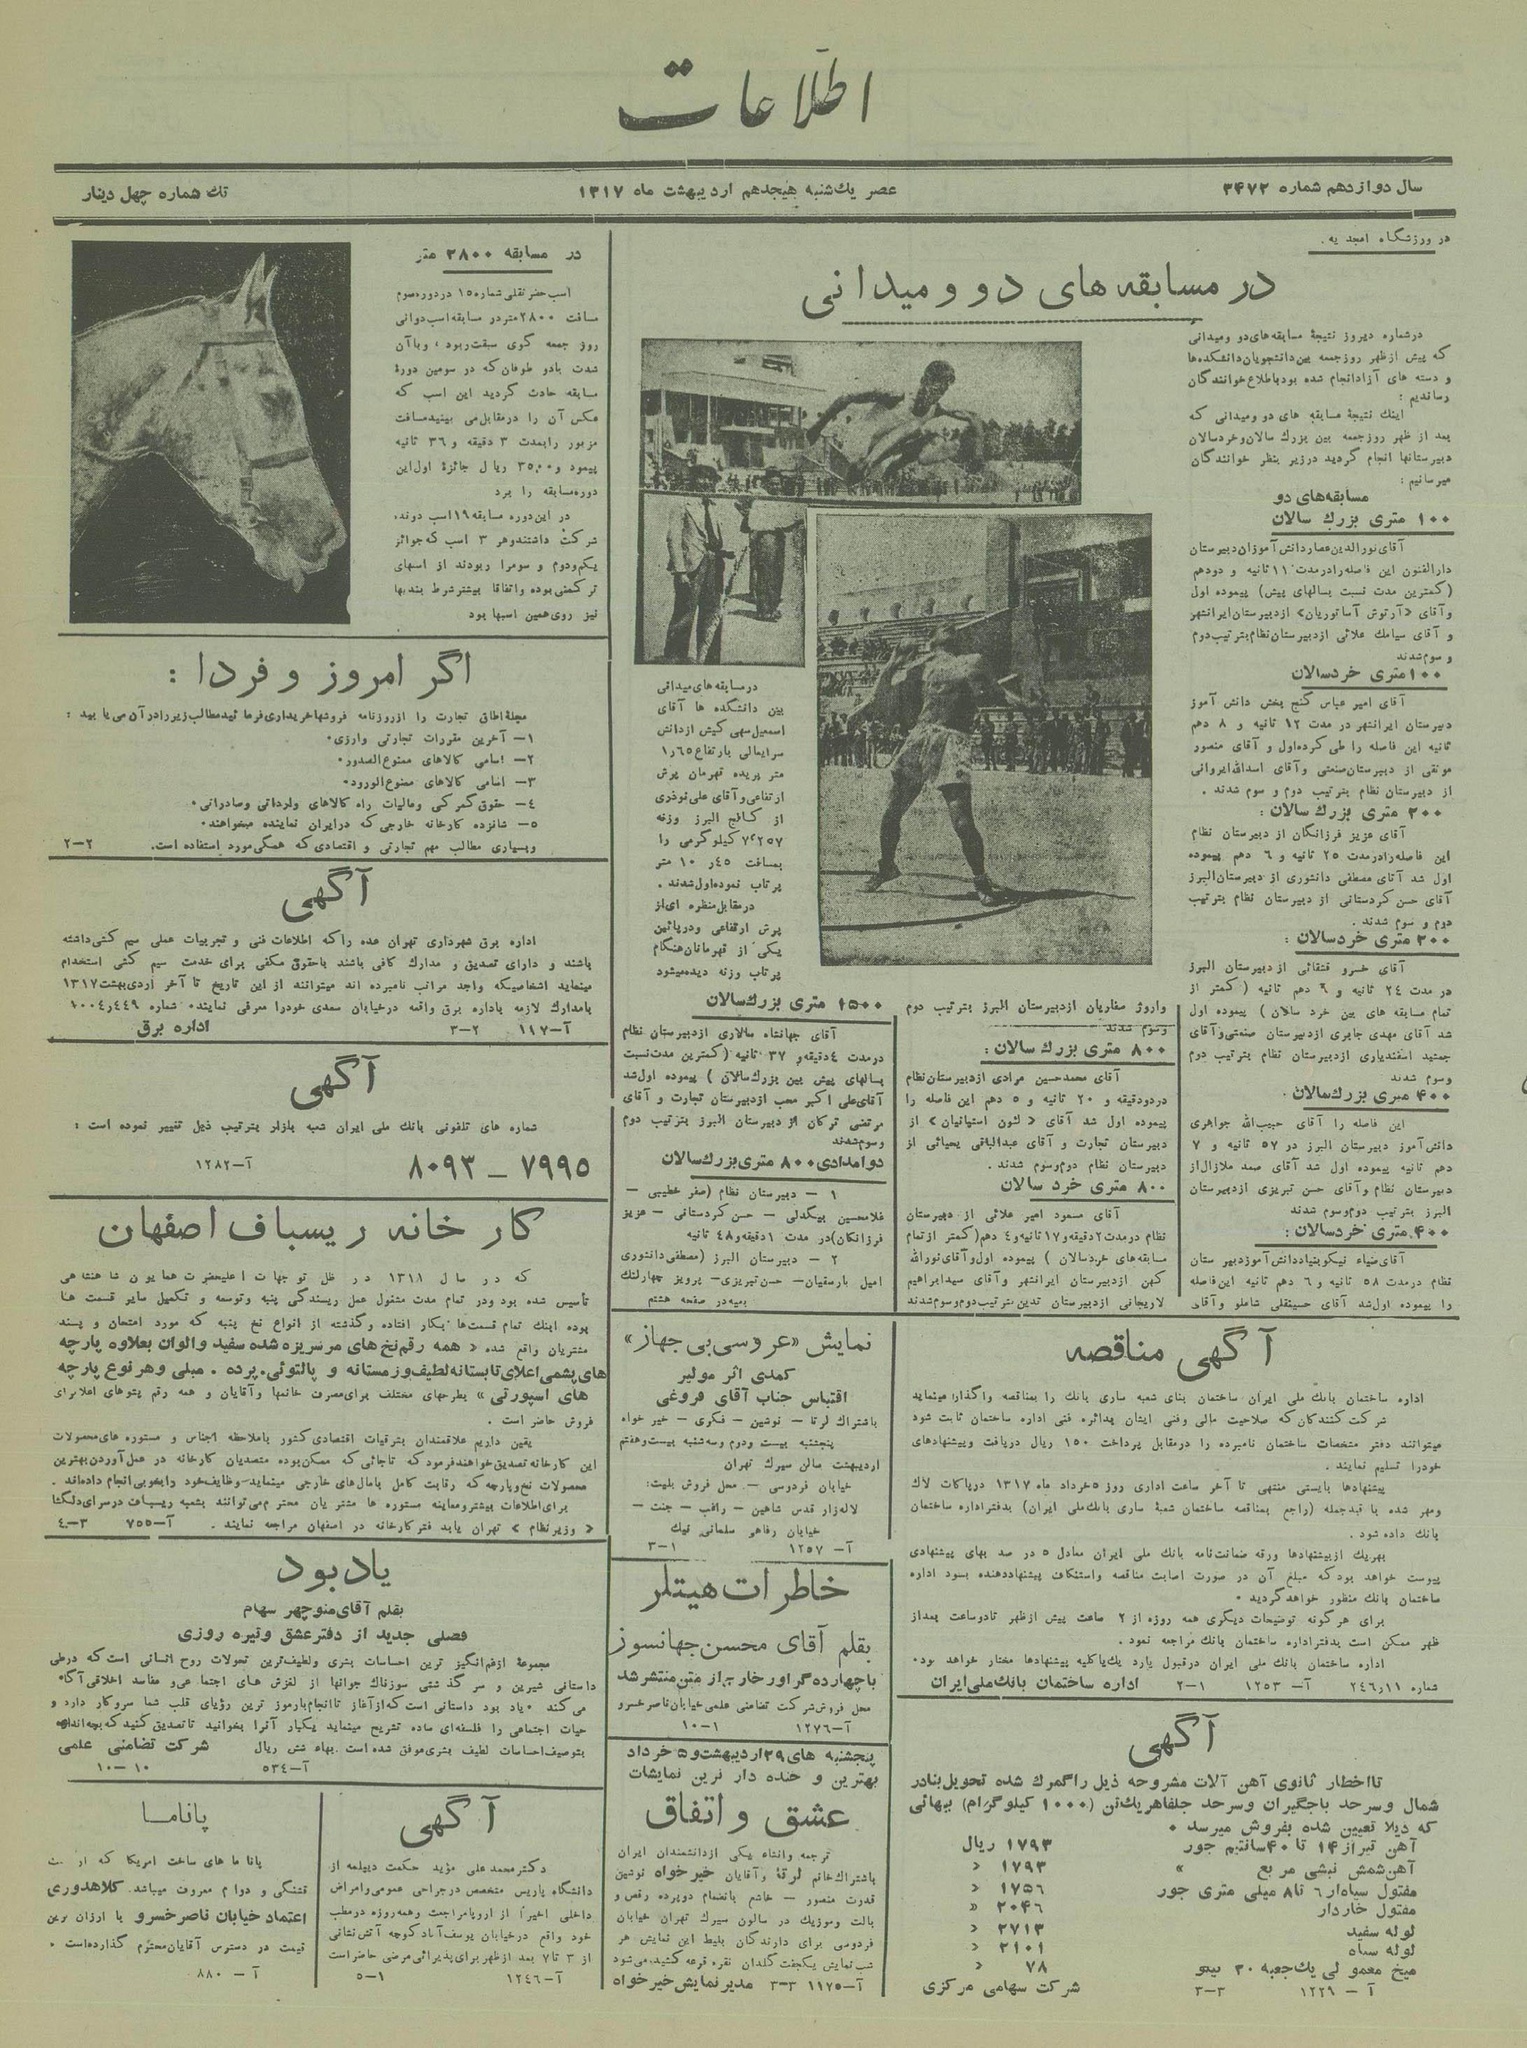 اطلاعات
سال دوازدهم شماره ۳۴۷۲
عصر یک‌شنبه هیجدهم اردیبهشت ماه ۱۳۱۷
تک شماره چهل دینار
در ورزشگاه امجدیه.
در مسابقه های دو و میدانی
در شماره دیروز نتیجهٔ مسابقه‌های دو ومیدانی
که پیش از ظهر روز جمعه بین دانشجویان دانشکده‌ها
و دسته های آزاد انجام شده بود باطلاع خوانندگان
رساندیم:
اینک نتیجهٔ مسابقه های دو ومیدانی که
بعد از ظهر روز جمعه بین بزرگ سالان وخردسالان
دبیرستانها انجام گردید درزیر بنظر خوانندگان
میرسانیم:
مسابقه‌های دو
۱۰۰ متری بزرگ سالان
آقای نورالدین عصار دانش آموزان دبیرستان
دارالفنون این فاصله را در مدت ۱۱ ثانیه و دو دهم
(کمترین مدت نسبت بسالهای پیش) پیموده اول
وآقای «آرتوش آساتوریان» از دبیرستان ایرانشهر
و آقای سیامک علائی از دبیرستان نظام بترتیب دوم
و سوم شدند
۱۰۰ متری خردسالان
آقای امیر عباس گنج بخش دانش آموز
دبیرستان ایرانشهر در مدت ۱۲ ثانیه و ۸ دهم
ثانیه این فاصله را طی کرده اول و آقای منصور
موثقی از دبیرستان صنعتی وآقای اسدالله ایروانی
از دبیرستان نظام بترتیب دوم و سوم شدند.
۲۰۰ متری بزرگ سالان:
آقای عزیز فرزانگان از دبیرستان نظام
این فاصله را در مدت ۲۵ ثانیه و ۶ دهم پیموده
اول شد آقای مصطفی دانشوری از دبیرستان البرز
آقای حسن کردستانی از دبیرستان نظام بترتیب
دوم و سوم شدند.
۲۰۰ متری خردسالان:
آقای خسرو قشقائی از دبیرستان البرز
در مدت ۲۴ ثانیه و ۶ دهم ثانیه (کمتر از
تمام مسابقه های بین خرد سالان) پیموده اول
شد آقای مهدی جابری از دبیرستان صنعتی وآقای
جمشید اسفندیاری از دبیرستان نظام بترتیب دوم
وسوم شدند
۴۰۰ متری بزرگ سالان.
این فاصله را آقای حبیب‌الله جواهری
دانش آموز دبیرستان البرز در ۵۷ ثانیه و ۷
دهم ثانیه پیموده اول شد آقای صمد ملازال از
دبیرستان نظام وآقای حسن تبریزی از دبیرستان
البرز بترتیب دوم وسوم شدند
۴۰۰ متری خردسالان:
آقای ضیاء نیکوبنیاد دانش آموز دبیرستان
نظام در مدت ۵۸ ثانیه و ۶ دهم ثانیه این فاصله
را پیموده اول شد آقای حسینقلی شاملو وآقای
واروژ سفاریان از دبیرستان البرز بترتیب دوم
وسوم شدند
۸۰۰ متری بزرگ سالان:
آقای محمد حسین مرادی از دبیرستان نظام
در دو دقیقه و ۲۰ ثانیه و ۵ دهم این فاصله را
پیموده اول شد آقای «لئون استپانیان» از
دبیرستان تجارت و آقای عبدالباقی یحیائی از
دبیرستان نظام دوم وسوم شدند.
۸۰۰ متری خرد سالان
آقای مسعود امیر علائی از دبیرستان
نظام در مدت ۲ دقیقه و ۱۷ ثانیه و ۴ دهم (کمتر از تمام
مسابقه های خردسالان) پیموده اول وآقای نورالله
کهن از دبیرستان ایرانشهر وآقای سید ابراهیم
لاریجانی از دبیرستان تدین بترتیب دوم وسوم شدند
در مسابقه های میدانی
بین دانشکده ها آقای
اسمعیل سهی کیش از دانش
سرایعالی بارتفاع ۱٫۶۵
متر پریده قهرمان پرش
ارتفاعی و آقای علی نوذری
از کالج البرز وزنه
۷٫۲۵۷ کیلوگرمی را
بمسافت ۱۰٫۴۵ متر
پرتاب نموده اول شدند.
در مقابل منظره ای از
پرش ارتفاعی ودر پائین
یکی از قهرمانان هنگام
پرتاب وزنه دیده میشود
۱۵۰۰ متری بزرگ سالان
آقای جهانشاه سالاری از دبیرستان نظام
در مدت ۴ دقیقه و ۳۷ ثانیه (کمترین مدت نسبت
بسالهای پیش بین بزرگ سالان) پیموده اول شد
آقای علی اکبر محب از دبیرستان تجارت و آقای
مرتضی ترکان از دبیرستان البرز بترتیب دوم
وسوم شدند
دو امدادی ۸۰۰ متری بزرگ سالان
۱ – دبیرستان نظام (صفر خطیبی –
غلامحسین بیگدلی – حسن کردستانی – عزیز
فرزانگان) در مدت ۱ دقیقه و ۴۸ ثانیه
۲ – دبیرستان البرز (مصطفی دانشوری
امیل بارسقیان – حسن تبریزی – پرویز چهارلنگ
بقیه در صفحه هشتم
در مسابقه ۲۸۰۰ متر
اسب خضر نقلی شماره ۱۵ در دوره سوم
مسافت ۲۸۰۰ متر در مسابقه اسب دوانی
روز جمعه گوی سبقت ربود، و با آن
شدت باد و طوفان که در سومین دورهٔ
مسابقه حادث گردید این اسب که
عکس آن را در مقابل می بینید مسافت
مزبور را بمدت ۳ دقیقه و ۳۶ ثانیه
پیمود و ۳۵۰۰ ریال جائزهٔ اول این
دوره مسابقه را برد
در این دوره مسابقه ۱۹ اسب دونده
شرکت داشتند و هر ۳ اسب که جوائز
یکم ودوم و سوم را ربودند از اسبهای
ترکمنی بوده واتفاقا بیشتر شرط بندیها
نیز روی همین اسبها بود
اگر امروز و فردا:
مجلهٔ اطاق تجارت را از روزنامه فروشها خریداری فرمائید مطالب زیر را در آن می یابید:
۱– آخرین مقررات تجارتی وارزی.
۲– اسامی کالاهای ممنوع الصدور.
۳– اسامی کالاهای ممنوع الورود.
۴– حقوق گمرکی ومالیات راه کالاهای وارداتی وصادراتی.
۵– شانزده کارخانه خارجی که در ایران نماینده میخواهند.
وبسیاری مطالب مهم تجارتی و اقتصادی که همگی مورد استفاده است. ۲–۲
آگهی
اداره برق شهرداری تهران عده را که اطلاعات فنی و تجربیات عملی سیم کشی داشته
باشند و دارای تصدیق و مدارک کافی باشند باحقوق مکفی برای خدمت سیم کشی استخدام
مینماید اشخاصیکه واجد مراتب نامبرده اند میتوانند از این تاریخ تا آخر اردی بهشت ۱۳۱۷
بامدارک لازمه باداره برق واقعه در خیابان سعدی خود را معرفی نمایند. شماره ۴۴۹ر۱۰۰۴
آ–۱۱۷ ۳–۲ اداره برق
آگهی
شماره های تلفونی بانک ملی ایران شعبه بازار بترتیب ذیل تغییر نموده است:
۷۹۹۵ – ۸۰۹۳ آ–۱۲۸۲
کارخانه ریسباف اصفهان
که در سال ۱۳۱۱ در ظل توجهات اعلیحضرت همایون شاهنشاهی
تأسیس شده بود ودر تمام مدت مشغول عمل ریسندگی پنبه وتوسعه و تکمیل سایر قسمت ها
بوده اینک تمام قسمتها بکار افتاده و گذشته از انواع نخ پنبه که مورد امتحان و پسند
مشتریان واقع شده «همه رقم نخ های مرسریزه شده سفید والوان بعلاوه پارچه
های پشمی اعلای تابستانه لطیف وزمستانه و پالتوئی. پرده. مبلی وهر نوع پارچه
های اسپورتی» بطرحهای مختلف برای مصرف خانمها وآقایان و همه رقم پتوهای اعلا برای
فروش حاضر است.
یقین داریم علاقمندان بترقیات اقتصادی کشور باملاحظه اجناس و مستوره های محصولات
این کارخانه تصدیق خواهند فرمود که تاجائی که ممکن بوده متصدیان کارخانه در عمل آوردن بهترین
محصولات نخ وپارچه که رقابت کامل بامال‌های خارجی مینماید – وظایف خود را بخوبی انجام داده‌اند.
برای اطلاعات بیشتر ومعاینه مستوره ها مشتریان محترم می توانند بشعبه ریسباف در سرای دلگشا
«وزیر نظام» تهران یا بدفتر کارخانه در اصفهان مراجعه نمایند. آ–۷۵۵ ۳–۴
یادبود
بقلم آقای منوچهر سهام
فصلی جدید از دفتر عشق و تیره روزی
مجموعهٔ از غم انگیز ترین احساسات بشری ولطیف ترین تحولات روح انسانی است که در طی
داستانی شیرین و سرگذشتی سوزناک جوانها از لغزش های اجتماعی و مفاسد اخلاقی آگاه
می کند. یاد بود داستانی است که از آغاز تا انجام بارموز ترین رؤیای قلب شما سروکار دارد و
حیات اجتماعی را فلسفه‌ای ساده تشریح مینماید یکبار آنرا بخوانید تا تصدیق کنید که بچه اندازه
بتوصیف احساسات لطیف بشری موفق شده است. بهاء شش ریال شرکت تضامنی علمی
آ–۵۳۴ ۱۰–۱۰
نمایش «عروسی بی جهاز»
کمدی اثر مولیر
اقتباس جناب آقای فروغی
باشتراک لرتا – نوشین – فکری – خیر خواه
پنجشنبه بیست ودوم وسه‌شنبه بیست وهفتم
اردیبهشت سالن سیرک تهران
خیابان فردوسی – محل فروش بلیت:
لاله‌زار قدس شاهین – راقب – جنت –
خیابان رفاهی سلمانی نیک
آ– ۱۲۵۷ ۱–۳
خاطرات هیتلر
بقلم آقای محسن جهانسوز
باچهارده گراور خارج از متن منتشر شد
محل فروش شرکت تضامنی علمی خیابان ناصر خسرو
آ–۱۲۷۶ ۱–۱۰
پنجشنبه های ۲۹ اردیبهشت و ۵ خرداد
بهترین و خنده دار ترین نمایشات
عشق و اتفاق
ترجمه وانشاء یکی از دانشمندان ایران
باشتراک خانم لرتا وآقایان خیر خواه نوشین
قدرت منصور – خاشع بانضمام دو پرده رقص و
بالت وموزیک در سالون سیرک تهران خیابان
فردوسی برای دارندگان بلیط این نمایش هر
شب نمایش یکجفت گلدان نقره قرعه کشیده میشود
آ–۱۱۷۵ ۳–۳ مدیر نمایش خیر خواه
آگهی مناقصه
اداره ساختمان بانک ملی ایران ساختمان بنای شعبه ساری بانک را بمناقصه واگذار مینماید
شرکت کنندگان که صلاحیت مالی وفنی ایشان بدائره فنی اداره ساختمان ثابت شود
میتوانند دفتر مشخصات ساختمان نامبرده را در مقابل پرداخت ۱۵۰ ریال دریافت و پیشنهادهای
خود را تسلیم نمایند.
پیشنهادها بایستی منتهی تا آخر ساعت اداری روز ۵ خرداد ماه ۱۳۱۷ در پاکات لاک
ومهر شده با قید جمله (راجع بمناقصه ساختمان شعبهٔ ساری بانک ملی ایران) بدفتر اداره ساختمان
بانک داده شود.
بهر یک از پیشنهادها ورقه ضمانت‌نامه بانک ملی ایران معادل ۵ در صد بهای پیشنهادی
پیوست خواهد بود که مبلغ آن در صورت اصابت مناقصه واستنکاف پیشنهاد دهنده بسود اداره
ساختمان بانک منظور خواهد گردید.
برای هر گونه توضیحات دیگری همه روزه از ۲ ساعت پیش از ظهر تا دو ساعت بعد از
ظهر ممکن است بدفتر اداره ساختمان بانک مراجعه نمود.
اداره ساختمان بانک ملی ایران در قبول یا رد یک یا کلیه پیشنهادها مختار خواهد بود.
شماره ۲۴۶٫۱۱ آ– ۱۲۵۳ ۱–۲ اداره ساختمان بانک ملی ایران
آگهی
تا اخطار ثانوی آهن آلات مشروحه ذیل را گمرک شده تحویل بنادر
شمال وسرحد باجگیران وسرحد جلفا هر یک تن (۱۰۰۰ کیلوگرام) ببهائی
که ذیلا تعیین شده بفروش میرسد.
آهن تیر از ۱۴ تا ۴۰ سانتیم جور ۱۷۹۳ ریال
آهن شمش نبشی مربع » ۱۷۹۳ «
مفتول سیاه از ۶ تا ۸ میلی متری جور ۱۷۵۶ «
مفتول خاردار ۲۰۴۶ «
لوله سفید ۲۷۱۳ «
لوله سیاه ۲۱۰۱ «
میخ معمولی یک جعبه ۳۰ ۷۸ «
آ – ۱۲۲۹ ۳–۳ شرکت سهامی مرکزی
آگهی
دکتر محمد علی مؤید حکمت دیپلمه از
دانشگاه پاریس متخصص در جراحی عمومی وامراض
داخلی اخیراً از اروپا مراجعت وهمه روزه در مطب
خود واقع در خیابان یوسف آباد کوچه آتش نشانی
از ۳ تا ۷ بعد از ظهر برای پذیرائی مرضی حاضر است
آ–۱۲۴۶ ۱–۵
پاناما
پانا ما های ساخت امریکا که از
قشنگی و دوام معروف میباشد. کلاهدوزی
اعتماد خیابان ناصر خسرو با ارزان ترین
قیمت در دسترس آقایان محترم گذارده است.
آ – ۸۸۰